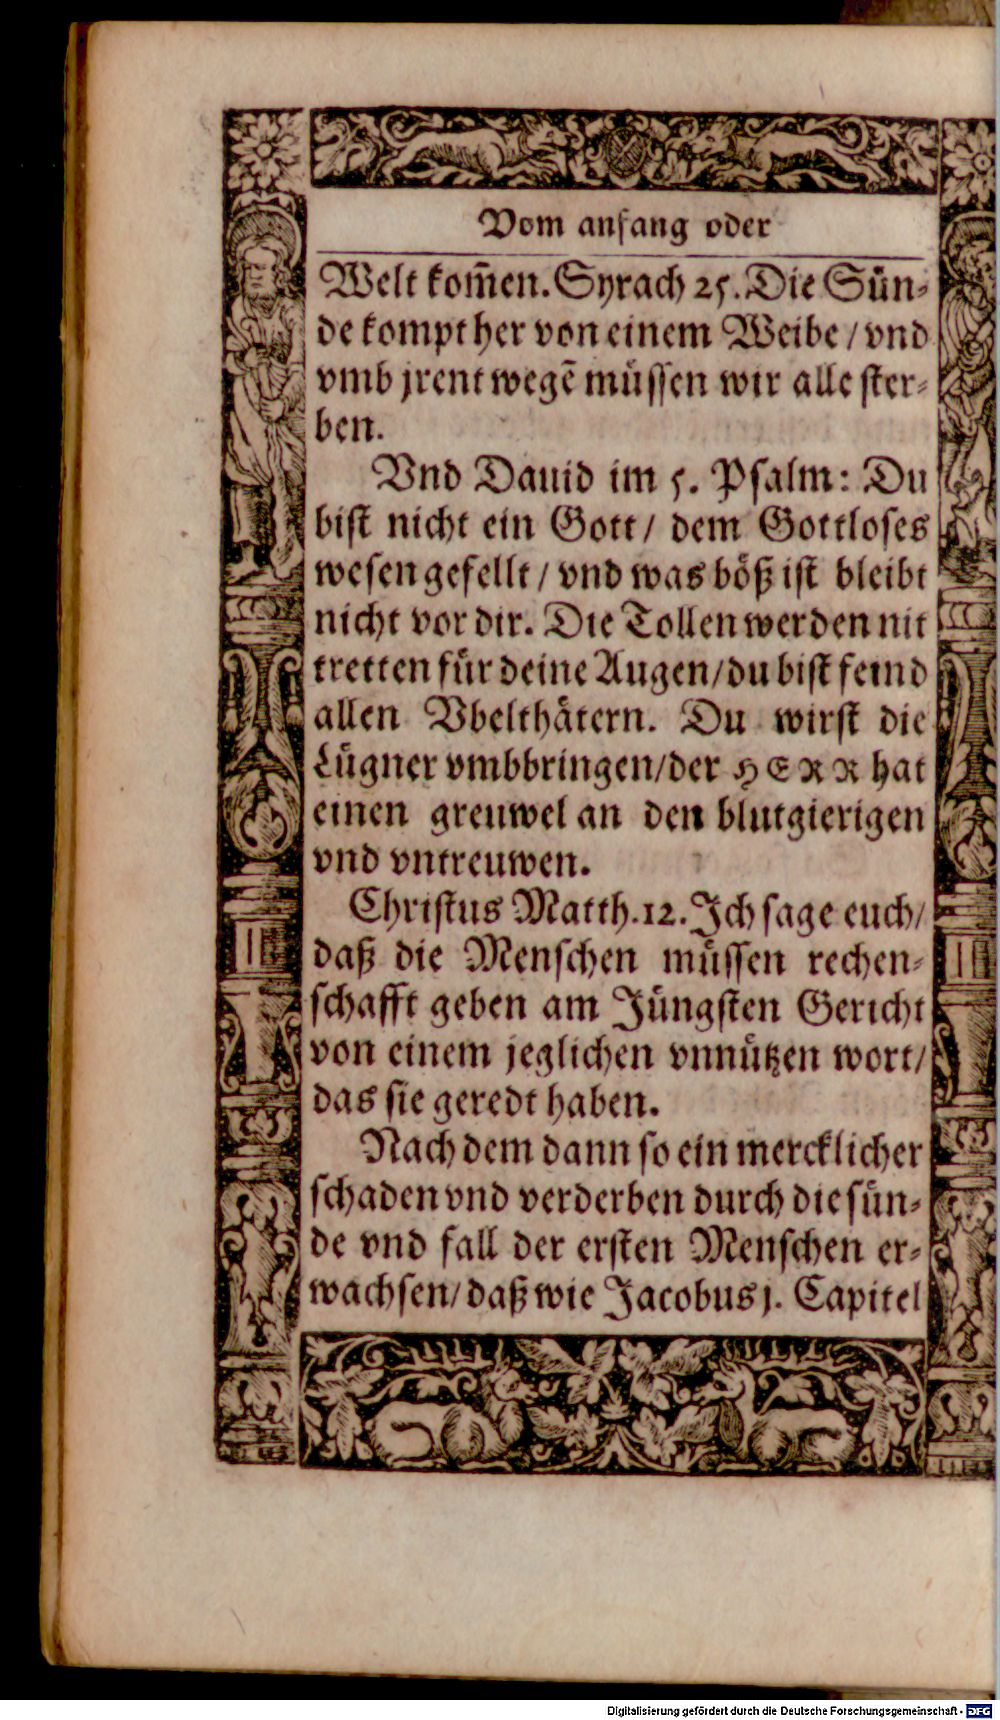 Vom anfang oder
Welt kom̃en. Syrach 25. Die Sün⸗
de kompt her von einem Weibe / vnd
vmb jrent wegẽ müssen wir alle ster⸗
ben.
Vnd Dauid im 5. Psalm: Du
bist nicht ein Gott / dem Gottloses
wesen gefellt / vnd was böß ist bleibt
nicht vor dir. Die Tollen werden nit
tretten für deine Augen / du bist feind
allen Vbelthätern. Du wirst die
Lügner vmbbringen / der HERR hat
einen greuwel an den blutgierigen
vnd vntreuwen.
Christus Matth. 12. Ich sage euch /
daß die Menschen müssen rechen⸗
schafft geben am Jüngsten Gericht
von einem jeglichen vnnützen wort /
das sie geredt haben.
Nach dem dann so ein mercklicher
schaden vnd verderben durch die sün⸗
de vnd fall der ersten Menschen er⸗
wachsen / daß wie Jacobus j. Capitel
Digitalisierung gefördert durch die Deutsche Forschungsgemeinschaft - DFG